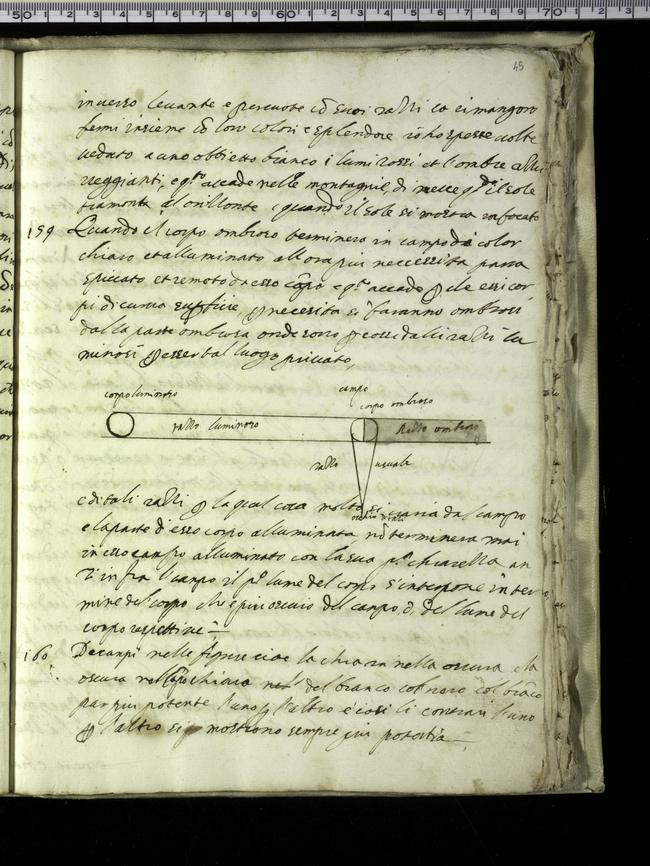 45
inverso levante e percuote cō suoi razzi co ei mangoro
femi insieme cō loro colori e splendore io ho spesse volte
vedato a uno obbietto bianco i lumi rossi et l'ombre azzu
rreggianti, e q.to accade nelle montagnie di neve q.do il sole
tramonta al orillonte e quando il sole si mostra infocato
159 Quando il corpo ombroso terminera in campo di color
chiaro et alluminato allora piu neccessita parra
spiccato et remoto da esso cāpo e q.to accade che essi cor
pi di curva suffitie, necessita si faranno ombrosi
dalla parte ombrosa onde sono percossi dalli razzi lu
minosi esser tal luogo privato,
corpo luminoso
campo
corpo ombroso
razzo luminoso
Razzo ombroso
razzo usuale
e di tali razzi la qual cosa molto si varia dal campo
e la parte d'esso corpo alluminata nō terminera mai
in esso campo alluminato con la sua p.a chiarezza an
zi infra l campo il p.o lume del corpo s'interpone in ter
mine del corpo che e piu oscuro del campo, ō del lume del
corpo respettive
160 De campi nelle figure cioe la chiara nella oscura e la
oscura nel cāpo chiaro del bianco col nero col biāco
par piu potente l'uno l'altro e cosi li contrari l'uno
l'altro si mostrono sempre piu potētia